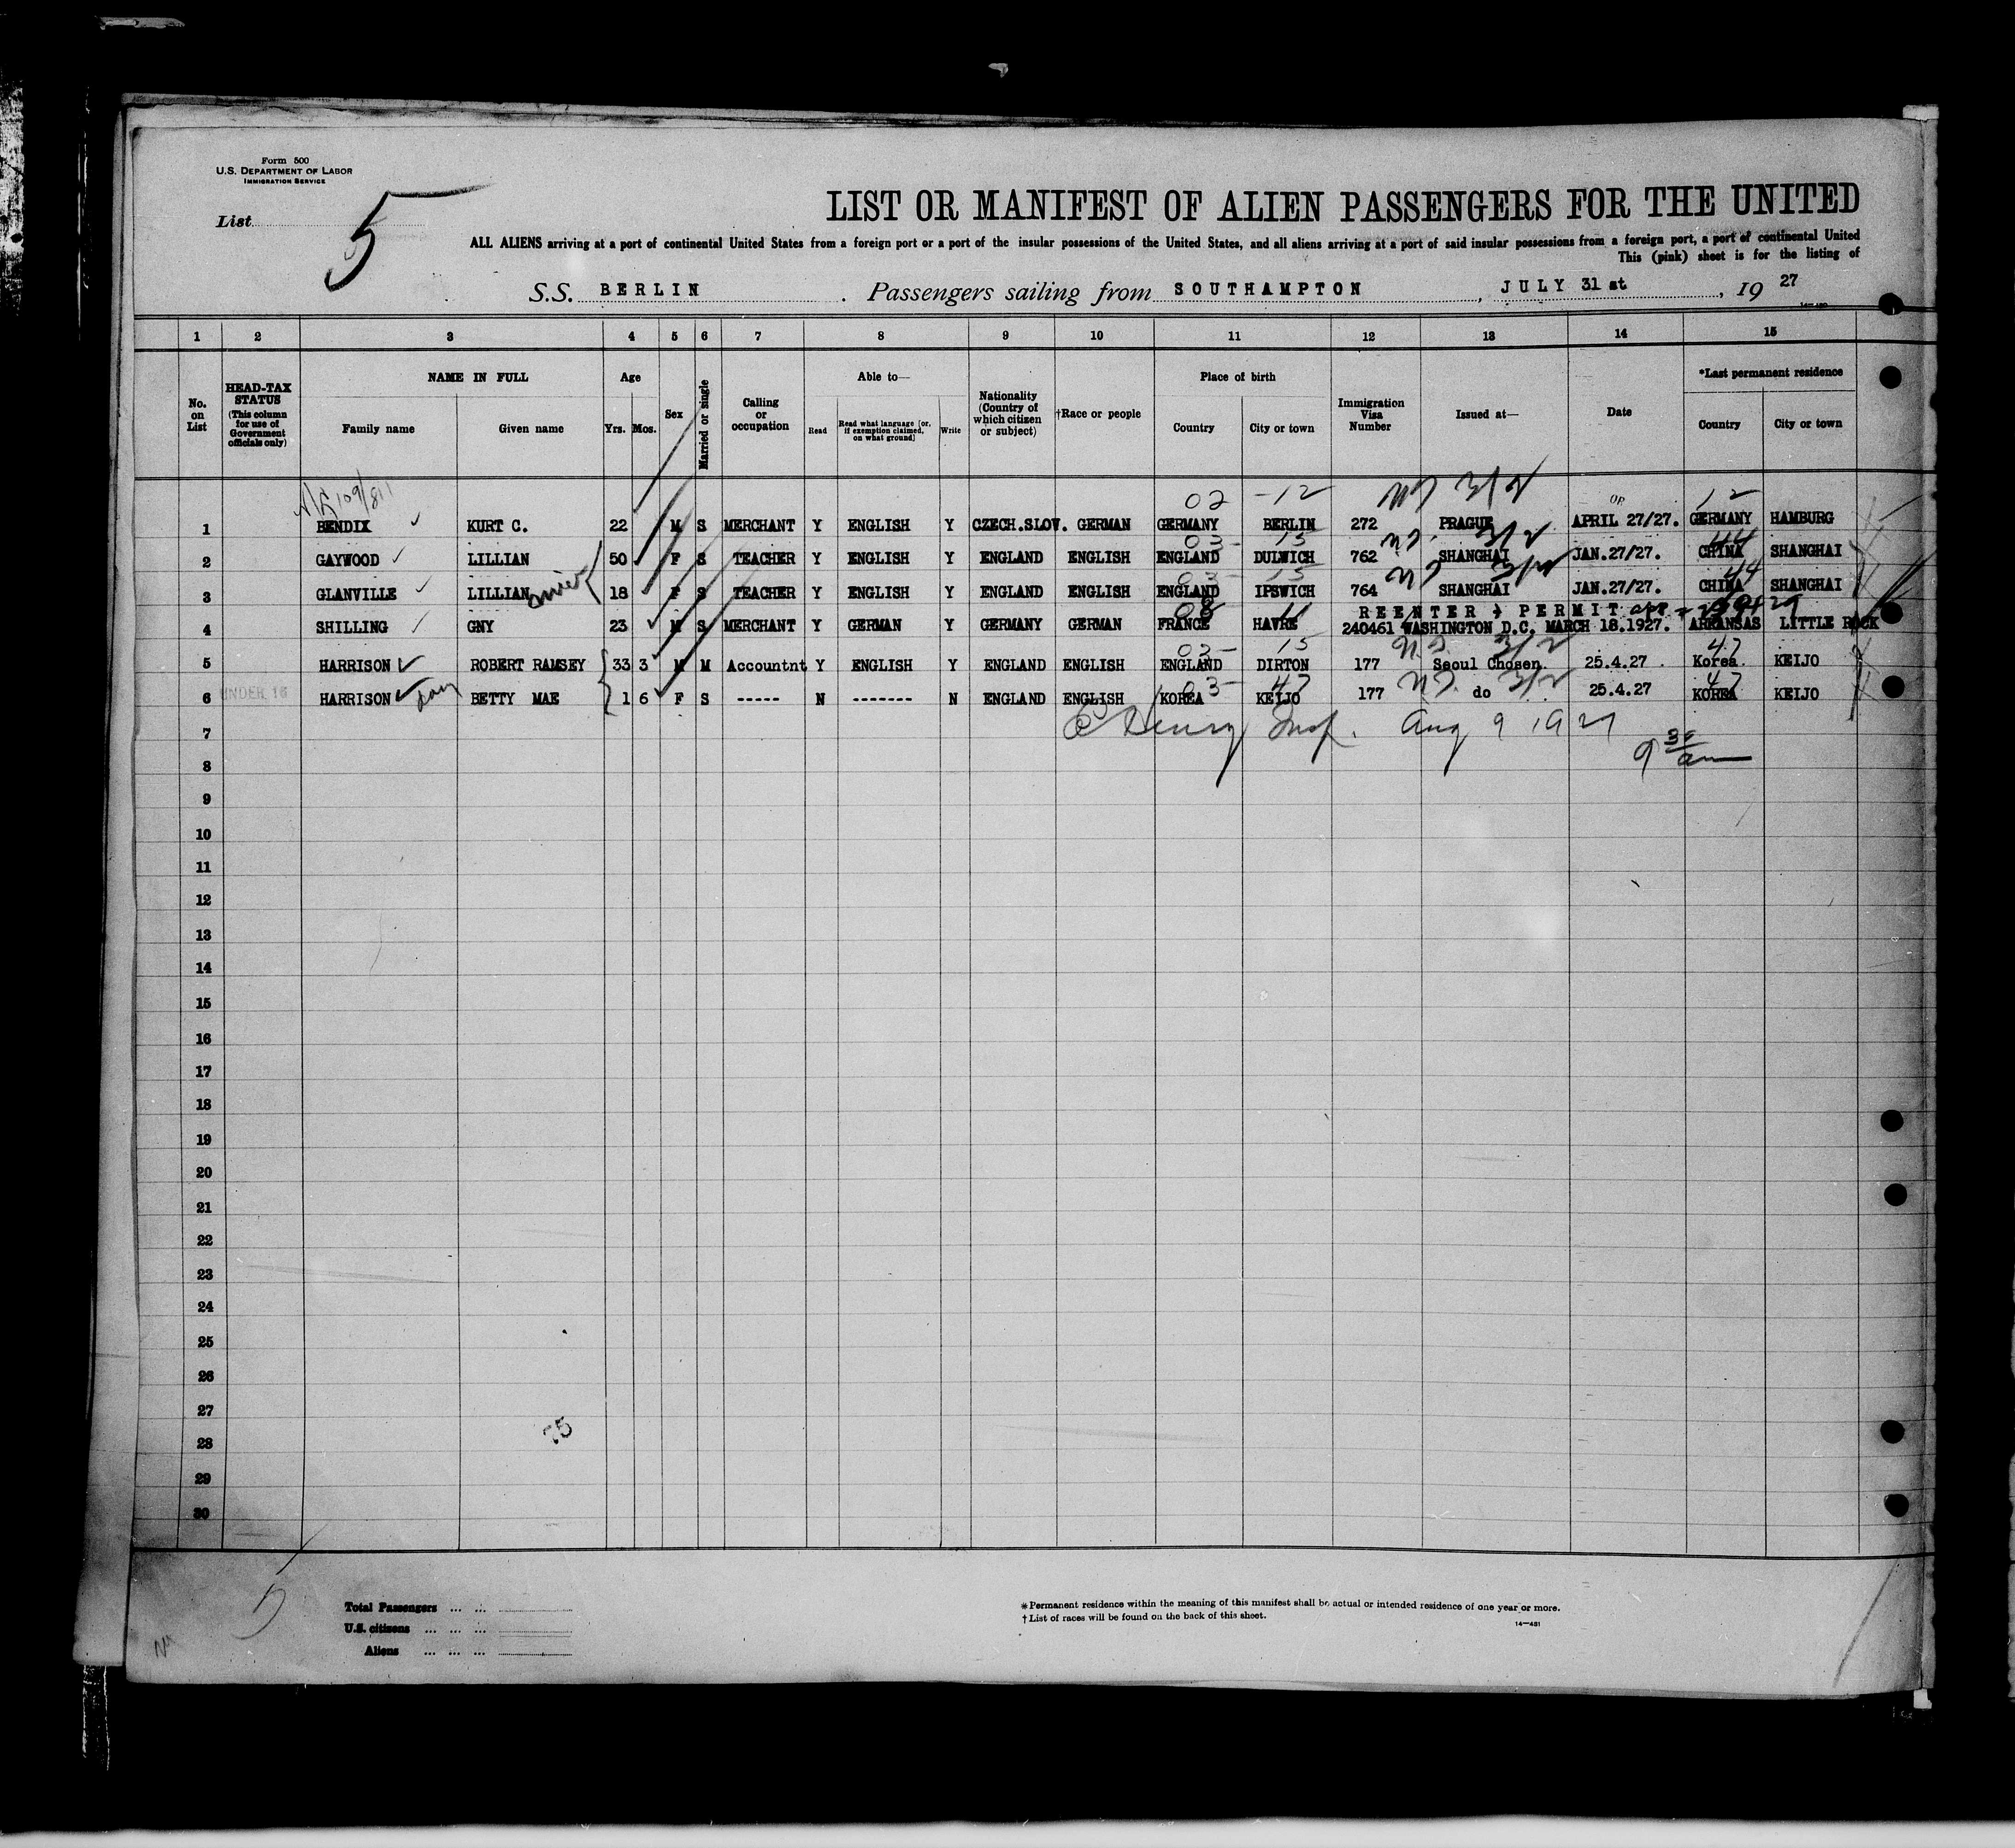 Form 500
U.S. DEPARTMENT OF LABOR
IMMIGRATION SERVICE
List 5
LIST OR MANIFEST OF ALIEN PASSENGERS FOR THE UNITED
ALL ALIENS arriving at a port of continental United States from a foreign port or a port of the insular possessions of the United States, and all aliens arriving at a port of said insular possessions from a foreign port, a port of continental United
This (pink) sheet is for the listing of
S.S. BERLIN . Passengers sailing from SOUTHAMPTON , JULY 31 st , 19 27
1 2 3 4 5 6 7 8 9 10 11 12 13 14 15
No. on List
HEAD-TAX STATUS (This column for use of Government officials only)
NAME IN FULL
Family name Given name
Age
Yrs. Mos.
Sex
Married or single
Calling or occupation
Able to—
Read
Read what language [or, if exemption claimed, on what ground]
Write
Nationality (Country of which citizen or subject)
†Race or people
Place of birth
Country City or town
Immigration Visa Number
Issued at—
Date
*Last permanent residence
Country City or town
109/811 02 -12 3/2 12
1 BENDIX KURT C. 22 M S MERCHANT Y ENGLISH Y CZECH.SLOV. GERMAN GERMANY BERLIN 272 PRAGUE APRIL 27/27. GERMANY HAMBURG
03- 15 3/2 44
2 GAYWOOD LILLIAN 50 F S TEACHER Y ENGLISH Y ENGLAND ENGLISH ENGLAND DULWICH 762 SHANGHAI JAN.27/27. CHINA SHANGHAI
03- 15 3/2 44
3 GLANVILLE LILLIAN 18 F S TEACHER Y ENGLISH Y ENGLAND ENGLISH ENGLAND IPSWICH 764 SHANGHAI JAN.27/27. CHINA SHANGHAI
08 11 REENTER PERMIT
4 SHILLING GNY 23 M S MERCHANT Y GERMAN Y GERMANY GERMAN FRANCE HAVRE 240461 WASHINGTON D.C. MARCH 18.1927. ARKANSAS LITTLE ROCK
03- 15 3/2 47
5 HARRISON ROBERT RAMSEY 33 3 M M Accountnt Y ENGLISH Y ENGLAND ENGLISH ENGLAND DIRTON 177 Seoul Chosen. 25.4.27 . Korea. KEIJO
03- 47 3/2 47
6 UNDER 16 HARRISON BETTY MAE 1 6 F S ----- N ------- N ENGLAND ENGLISH KOREA KEIJO 177 do 25.4.27 KOREA KEIJO
7 Henry Insp. Aug 9 1927
9 30 am
8
9
10
11
12
13
14
15
16
17
18
19
20
21
22
23
24
25
26
27
28
29
30
75
Total Passengers ... ...
U.S. citizens ... ... ...
Aliens ... ... ...
*Permanent residence within the meaning of this manifest shall be actual or intended residence of one year or more.
†List of races will be found on the back of this sheet.
14—481